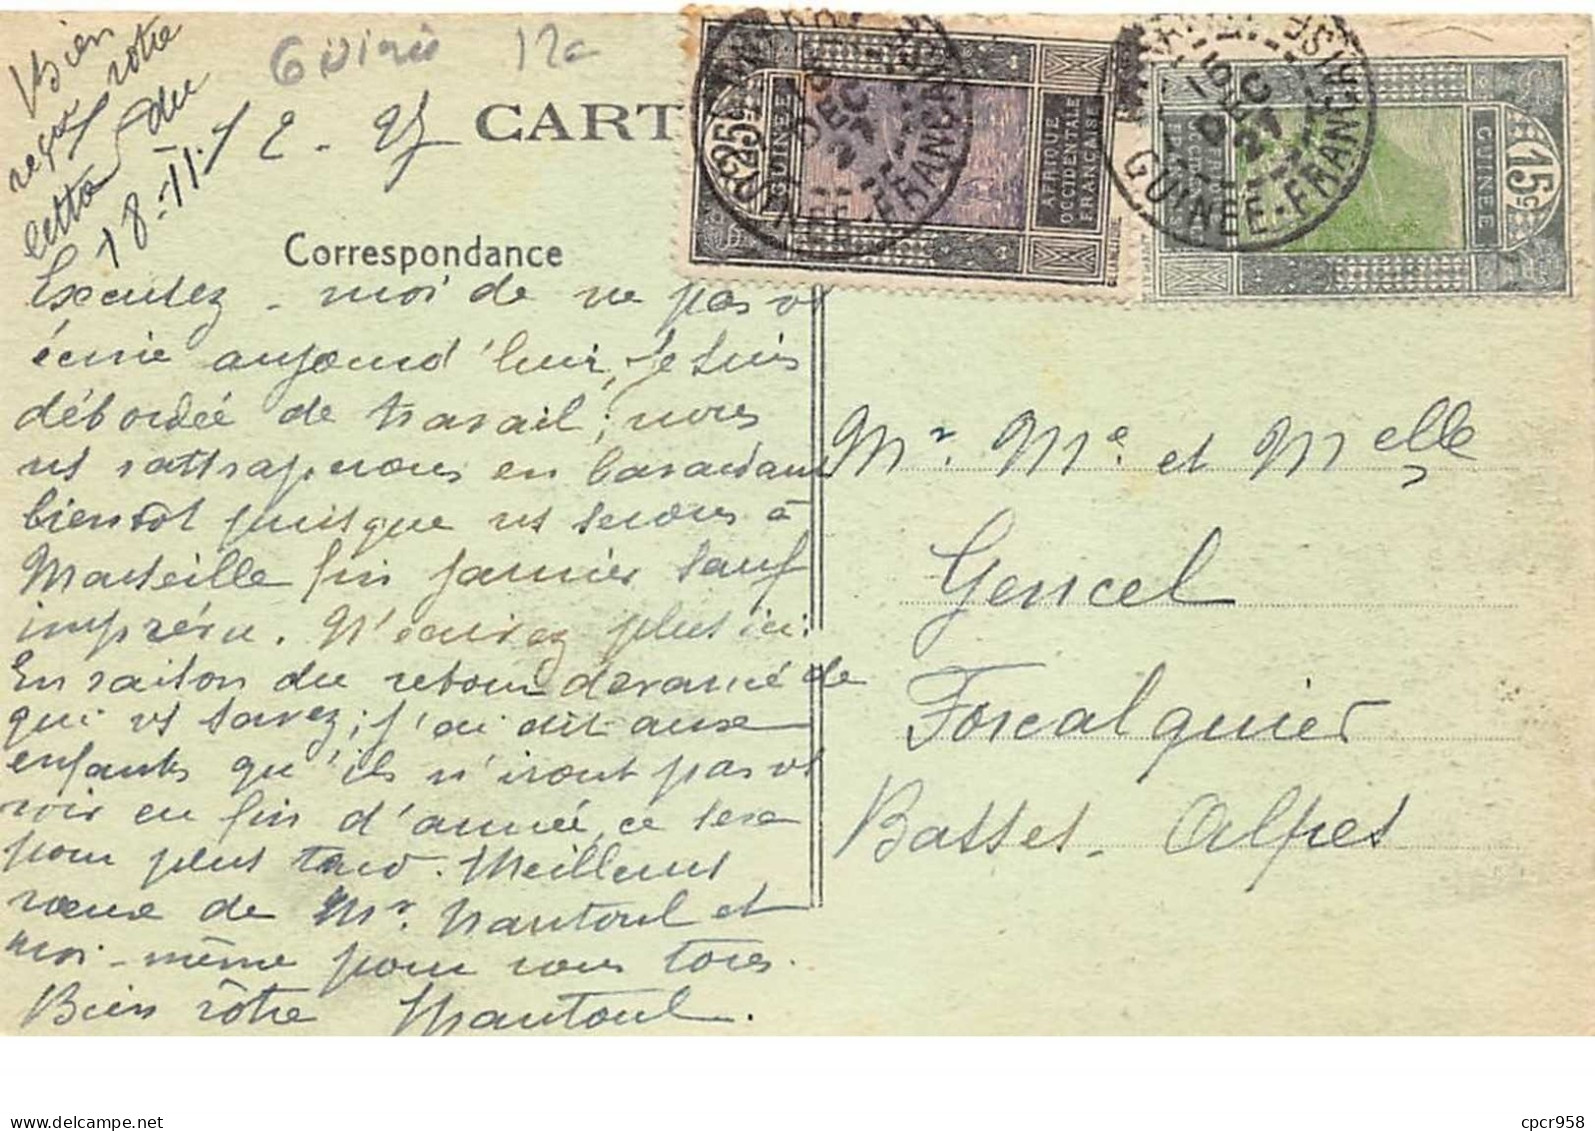 Bien
reçu votre
lettre du
18-11.
Guinée 12c
/ 2 - 27
CART
Correspondance
Excusez-moi de ne pas vs
écrire aujourd'hui, je suis
débordée de travail; nous
ns rattraperons en bavardant
bientôt puisque ns serons à
Marseille fin janvier sauf
imprévu. N'écrivez plus ici.
En raison du retour devancé de
qui vs savez; j'ai dit aux
enfants qu'ils n'iront pas vs
voir en fin d'année, ce sera
pour plus tard. Meilleurs
vœux de Mr. Nantoul et
moi-même pour vous tous.
Bien vôtre Nantoul.
25c
GUINÉE
AFRIQUE
OCCIDENTALE
FRANÇAISE
DEC
27
GUINÉE-FRANÇAISE
15c
GUINÉE
AFRIQUE
OCCIDENTALE
FRANÇAISE
DEC
27
GUINÉE-FRANÇAISE
Mr. Me. et Melle
Gencel
Forcalquier
Basses-Alpes
cpcr958